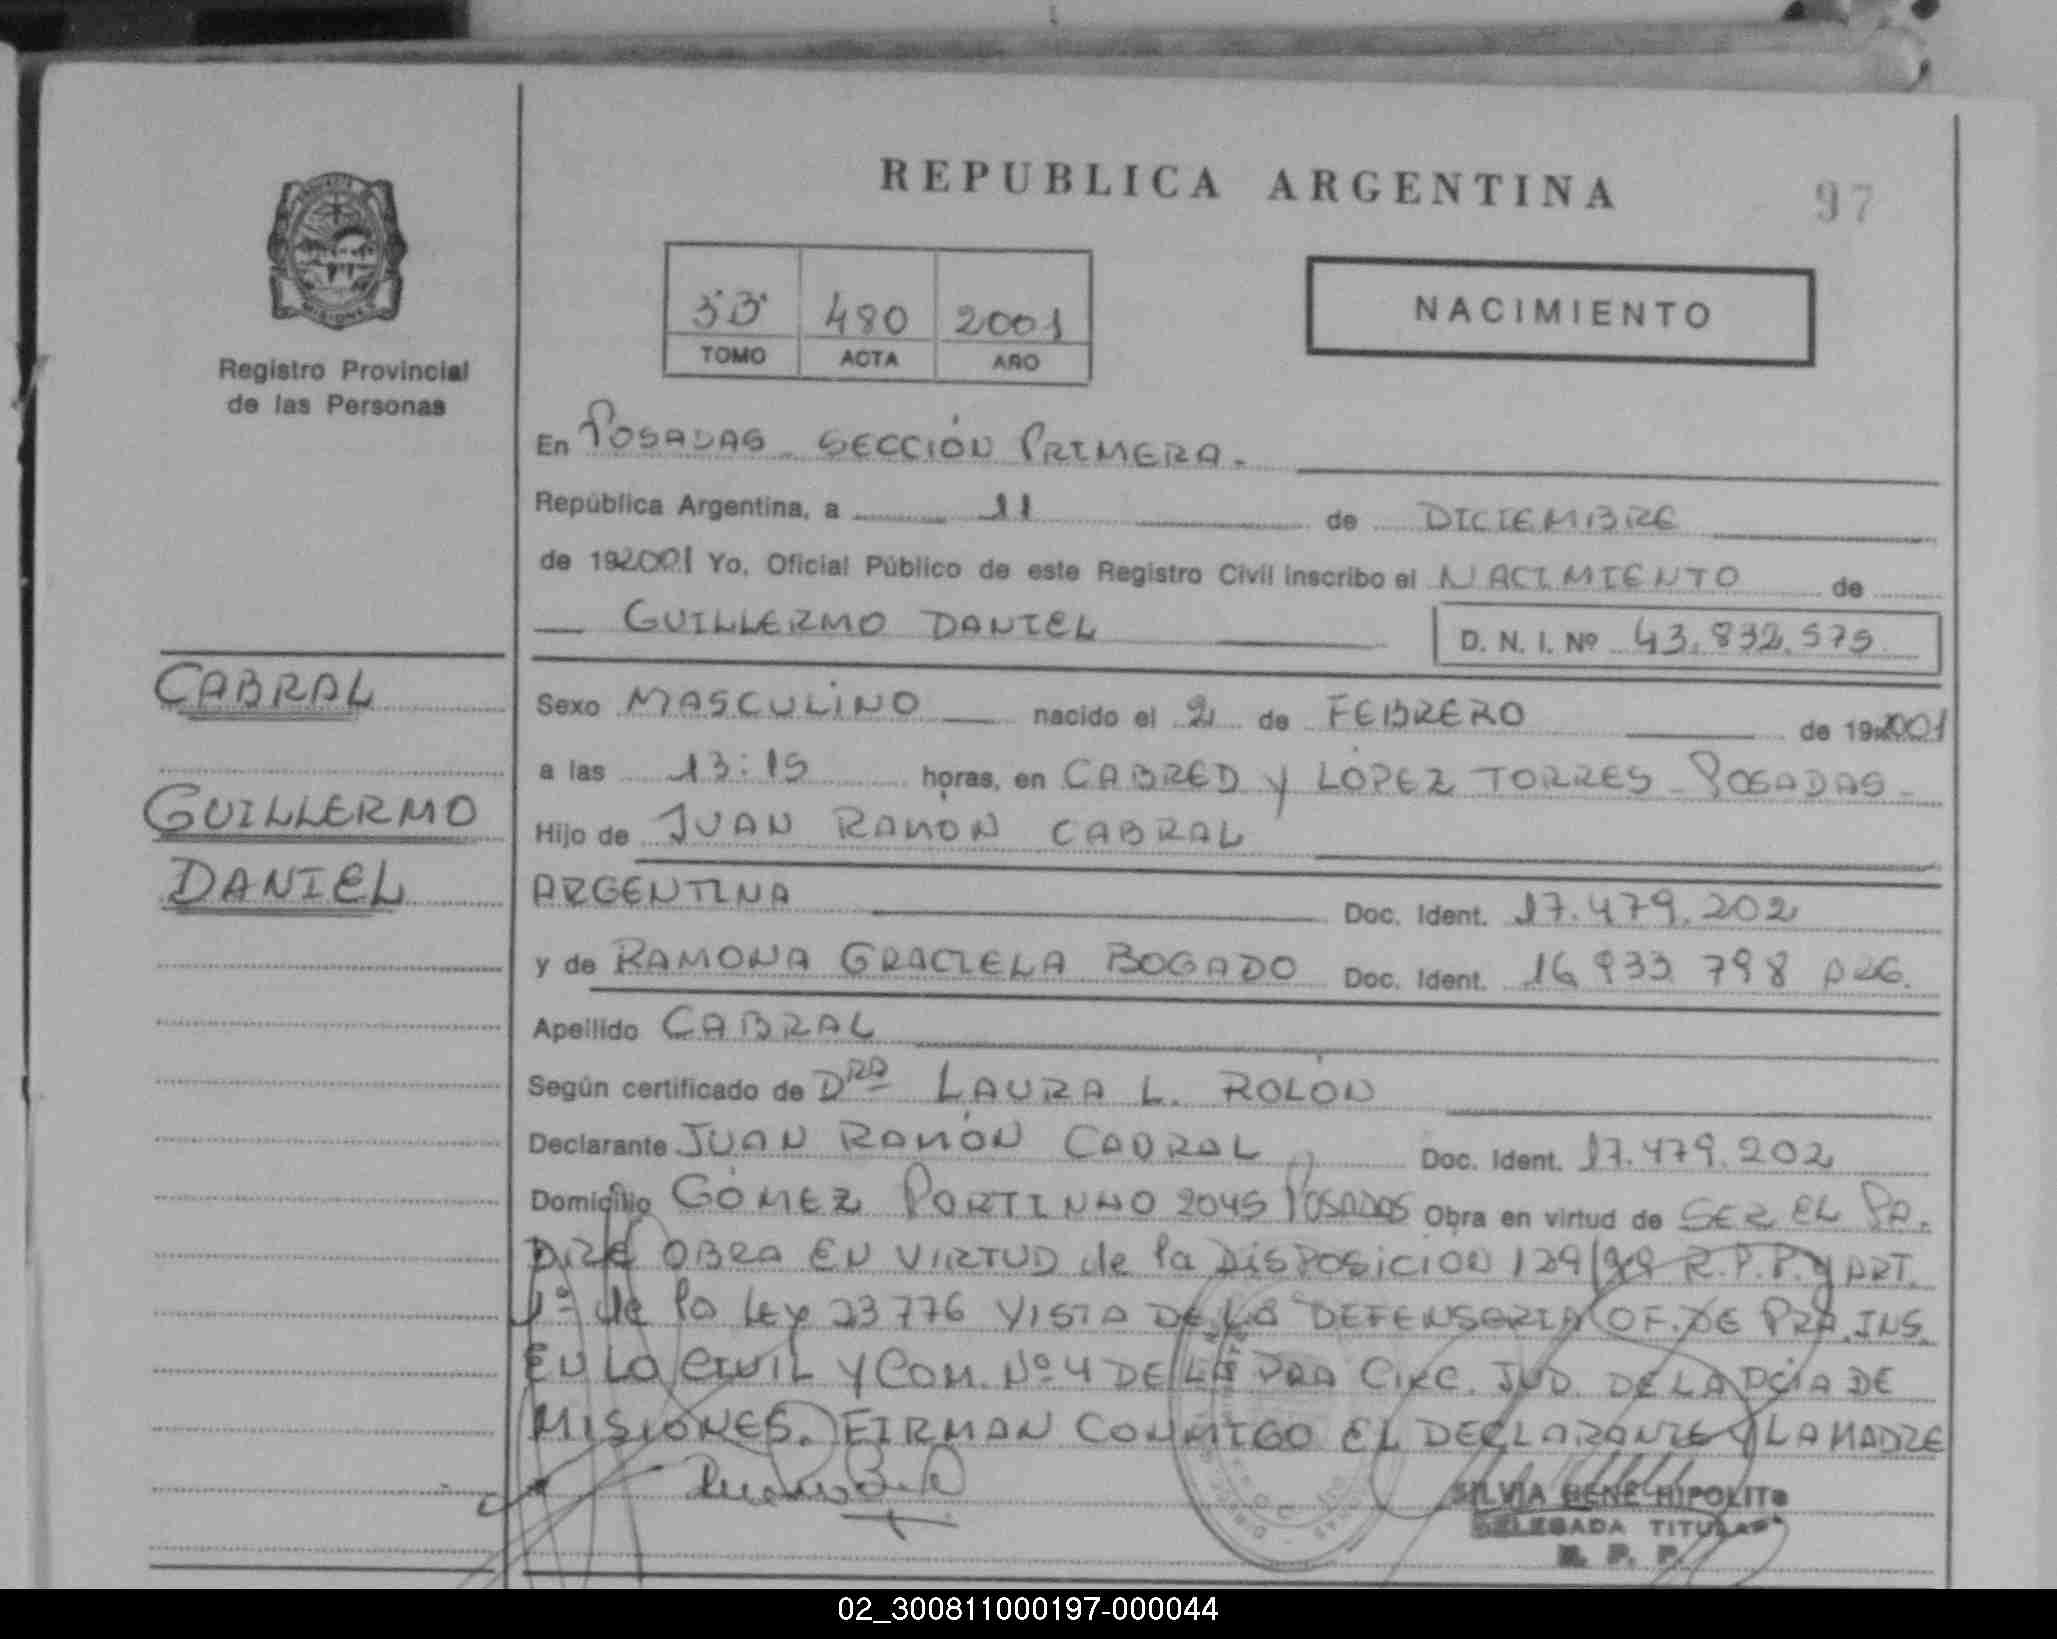 REPUBLICA ARGENTINA
97
MISIONES
Registro Provincial
de las Personas
3"B" 480 2001
TOMO ACTA AÑO
NACIMIENTO
En POSADAS - SECCIÓN PRIMERA.
República Argentina, a 11 de DICIEMBRE
de 192001 Yo, Oficial Público de este Registro Civil inscribo el NACIMIENTO de
GUILLERMO DANIEL
D. N. I. Nº 43.832.575
CABRAL
GUILLERMO
DANIEL
Sexo MASCULINO nacido el 2 de FEBRERO de 192001
a las 13:15 horas, en CABRED y LÓPEZ TORRES - POSADAS -
Hijo de JUAN RAMÓN CABRAL
ARGENTINA Doc. Ident. 17.479.202
y de RAMONA GRACIELA BOGADO Doc. Ident. 16.933.798 ARG.
Apellido CABRAL
Según certificado de DRA LAURA L. ROLÓN
Declarante JUAN RAMÓN CABRAL Doc. Ident. 17.479.202
Domicilio GÓMEZ PORTINHO 2045 POSADAS Obra en virtud de SER EL PA.
DRE OBRA EN VIRTUD de la DISPOSICION 129/99 R.P.P. y ART.
1º de la LEY 23776 VISTA DE LA DEFENSORIA OF. DE PRA. INS.
EN LO CIVIL Y COM. Nº 4 DE LA PRA CIRC. JUD. DE LA PCIA DE
MISIONES. FIRMAN CONMIGO EL DECLARANTE y LA MADRE
SILVIA RENE HIPOLITO
DELEGADA TITULAR
R. P. P.
02_300811000197-000044